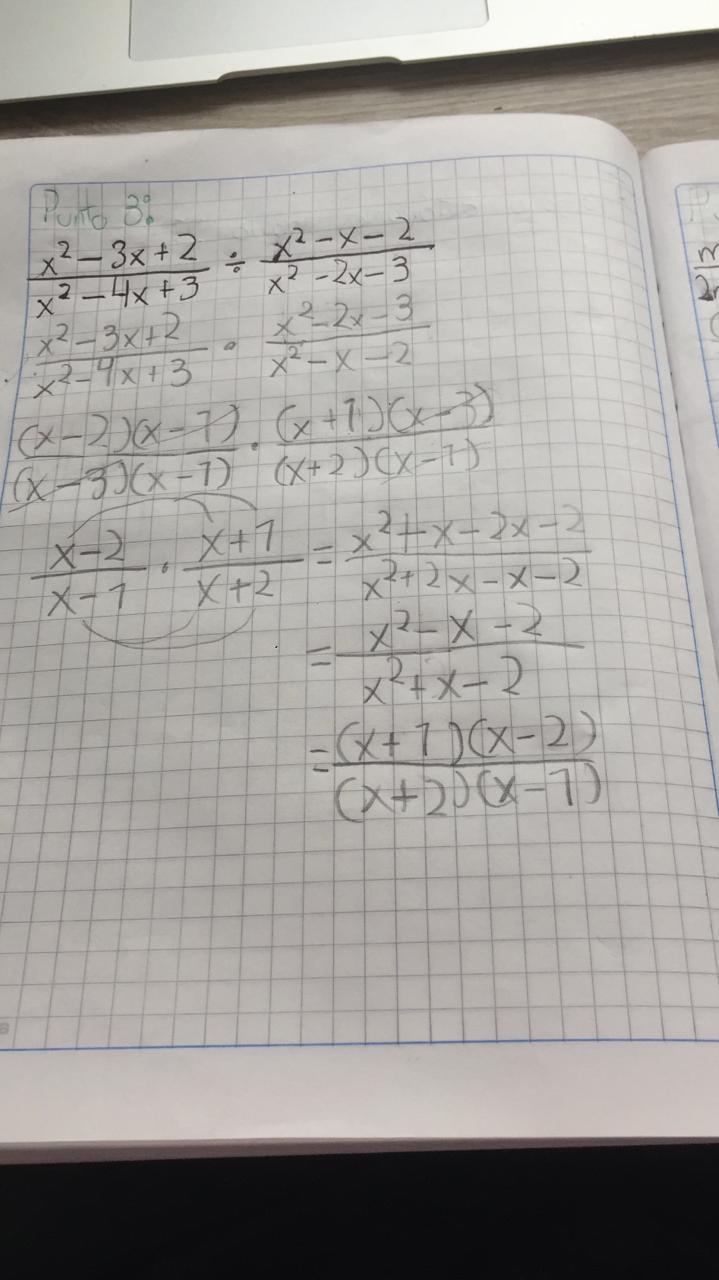 Punto 3:
x² - 3x + 2 / x² - 4x + 3 ÷ x² - x - 2 / x² - 2x - 3
x² - 3x + 2 / x² - 4x + 3 · x² - 2x - 3 / x² - x - 2
(x - 2)(x - 1) / (x - 3)(x - 1) · (x + 1)(x - 3) / (x + 2)(x - 1)
x - 2 / x - 1 · x + 1 / x + 2 = x² + x - 2x - 2 / x² + 2x - x - 2
= x² - x - 2 / x² + x - 2
= (x + 1)(x - 2) / (x + 2)(x - 1)